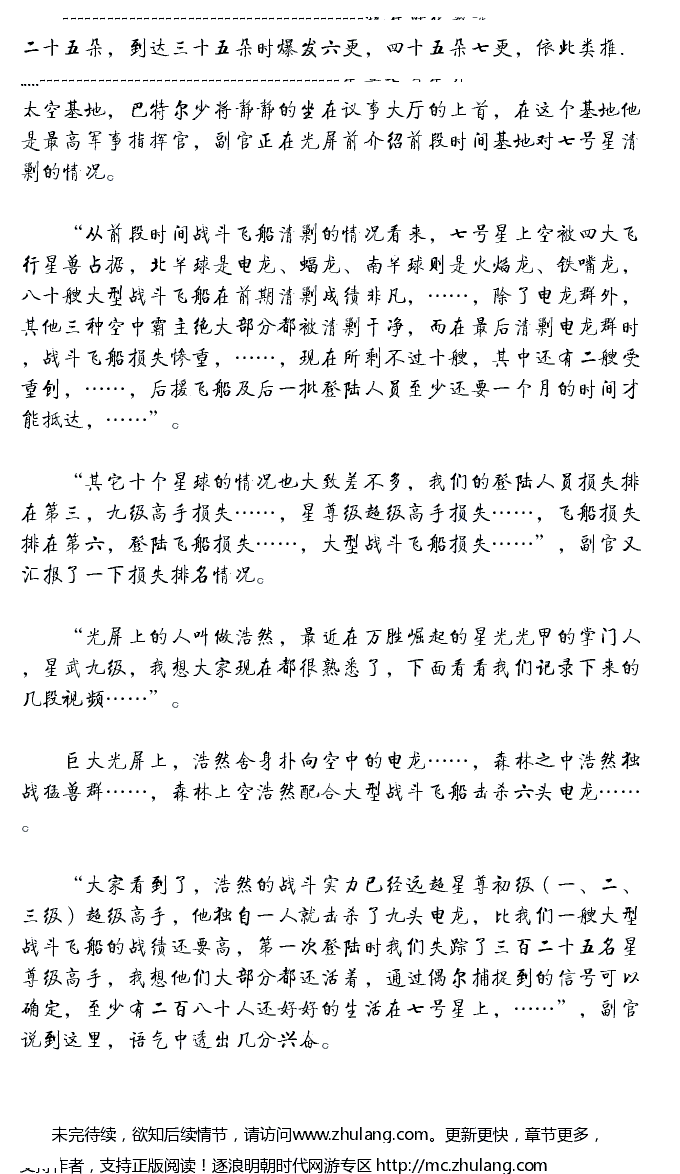 二十五朵，到达三十五朵时爆发六更，四十五朵七更，依此类推.
太空基地，巴特尔少将静静的坐在议事大厅的上首，在这个基地他
是最高军事指挥官，副官正在光屏前介绍前段时间基地对七号星清
剿的情况。
“从前段时间战斗飞船清剿的情况看来，七号星上空被四大飞
行星兽占据，北半球是电龙、蝠龙、南半球则是火焰龙、铁嘴龙，
八十艘大型战斗飞船在前期清剿成绩非凡，……，除了电龙群外，
其他三种空中霸主绝大部分都被清剿干净，而在最后清剿电龙群时
，战斗飞船损失惨重，……，现在所剩不过十艘，其中还有二艘受
重创，……，后援飞船及后一批登陆人员至少还要一个月的时间才
能抵达，……”。
“其它十个星球的情况也大致差不多，我们的登陆人员损失排
在第三，九级高手损失……，星尊级超级高手损失……，飞船损失
排在第六，登陆飞船损失……，大型战斗飞船损失……”，副官又
汇报了一下损失排名情况。
“光屏上的人叫做浩然，最近在万胜崛起的星光光甲的掌门人
，星武九级，我想大家现在都很熟悉了，下面看看我们记录下来的
几段视频……”。
巨大光屏上，浩然舍身扑向空中的电龙……，森林之中浩然独
战猛兽群……，森林上空浩然配合大型战斗飞船击杀六头电龙……
。
“大家看到了，浩然的战斗实力已经远超星尊初级（一、二、
三级）超级高手，他独自一人就击杀了九头电龙，比我们一艘大型
战斗飞船的战绩还要高，第一次登陆时我们失踪了三百二十五名星
尊级高手，我想他们大部分都还活着，通过偶尔捕捉到的信号可以
确定，至少有二百八十人还好好的生活在七号星上，……”，副官
说到这里，语气中透出几分兴奋。
未完待续，欲知后续情节，请访问www.zhulang.com。更新更快，章节更多，
支持作者，支持正版阅读！逐浪明朝时代网游专区 http://mc.zhulang.com